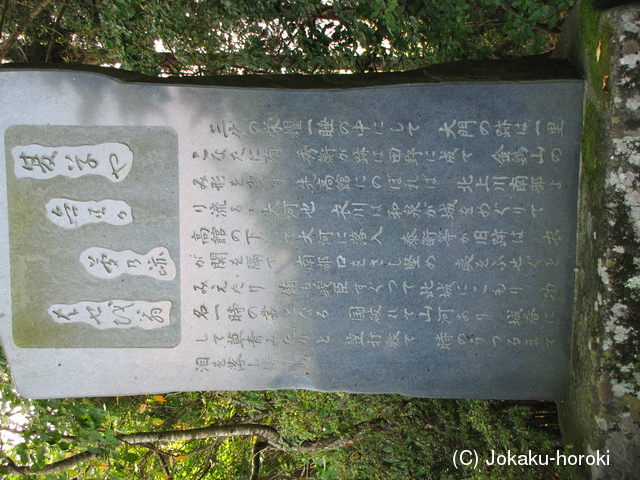 夏草や
兵共か
夢乃跡
はせを翁
三代の栄耀一睡の中にして 大門の跡は一里
こなたに有 秀衡が跡は田野に成て 金鶏山の
み形を残す 先高館にのぼれば 北上川南部よ
り流るゝ大河也 衣川は和泉が城をめぐりて
高館の下にて大河に落入 泰衡等が旧跡は 衣
が関を隔て 南部口をさし堅め 夷をふせぐと
みえたり 偖も義臣すぐつて此城にこもり 功
名一時の叢となる 国破れて山河あり 城春に
して草青みたりと 笠打敷て 時のうつるまで
泪を落し侍りぬ
(C) Jokaku-horoki